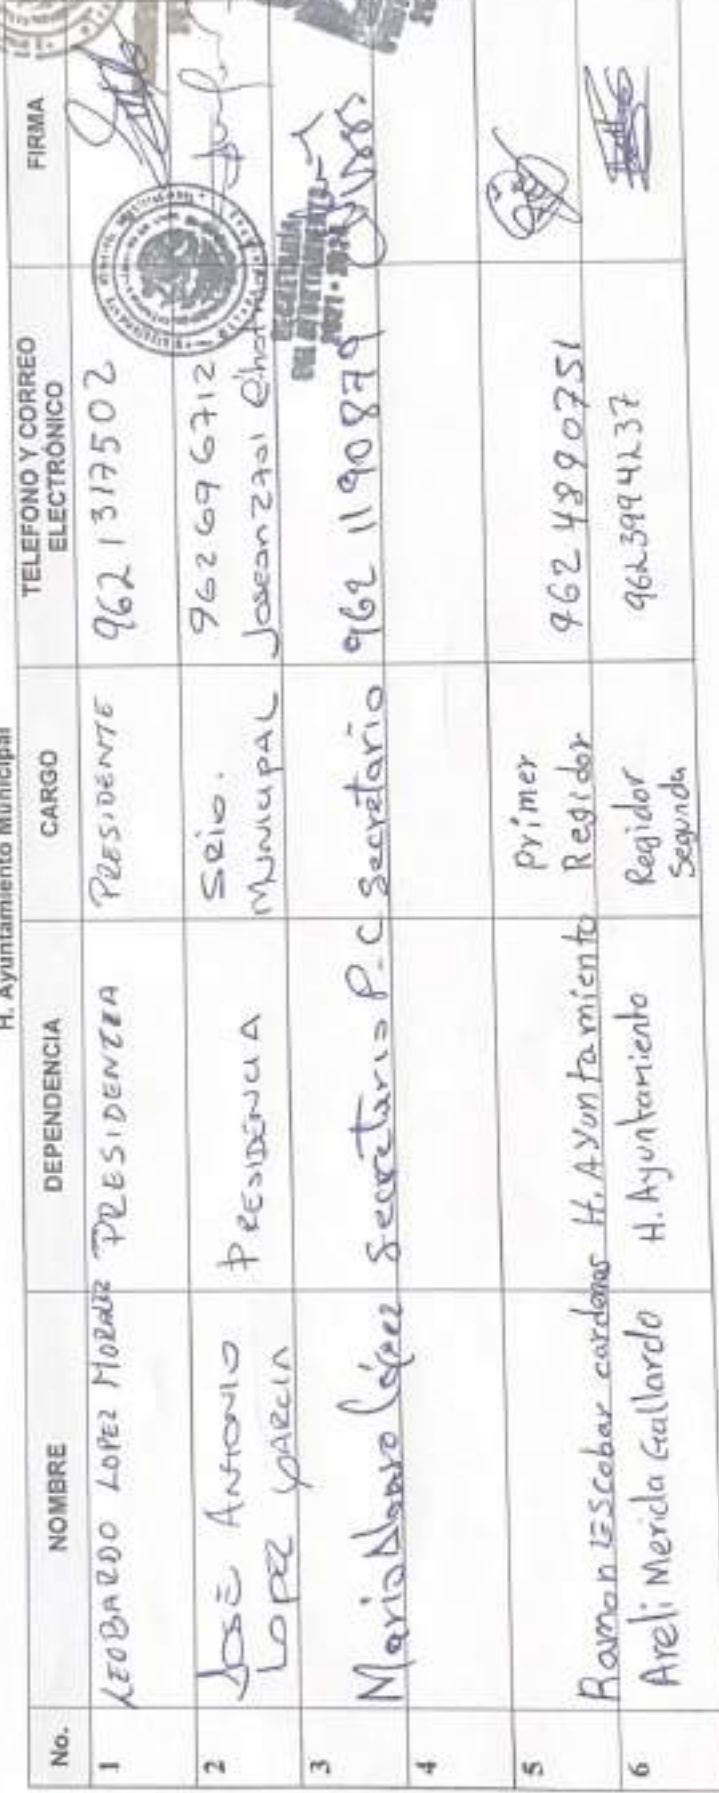 H. Ayuntamiento Municipal
No. NOMBRE DEPENDENCIA CARGO TELEFONO Y CORREO ELECTRÓNICO FIRMA
1 LEOBARDO LOPEZ MORALES PRESIDENZIA PRESIDENTE 9621317502
2 JOSÉ ANTONIO LOPEZ GARCIA PRESIDENCIA SRIO. MUNICIPAL 962 69 6 6712
3 Mario López Secretario P.C Secretario 962 11 90879
SECRETARIA DEL AYUNTAMIENTO
2021 - 2024
4
5 Ramon Escobar cardenas H. Ayuntamiento Primer Regidor 962 4890751
6 Areli Merida Gallardo H. Ayuntamiento Regidor Segunda 9623994237